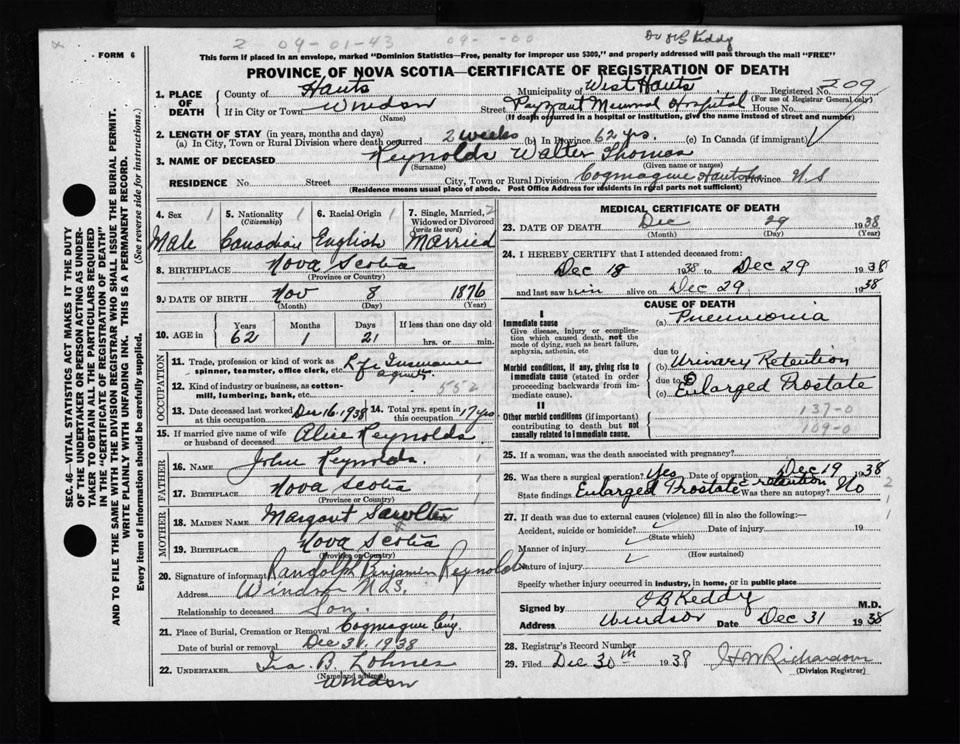 2 09-01-43 09- -00 Dr OB Keddy
FORM 6
This form if placed in an envelope, marked "Dominion Statistics—Free, penalty for improper use $300," and properly addressed will pass through the mail "FREE"
PROVINCE OF NOVA SCOTIA—CERTIFICATE OF REGISTRATION OF DEATH
1. PLACE OF DEATH County of Hants Municipality of West Hants Registered No. 209
(For use of Registrar General only)
If in City or Town Windsor Street Payzant Memorial Hospital House No.
(Name) (If death occurred in a hospital or institution, give the name instead of street and number)
2. LENGTH OF STAY (in years, months and days)
(a) In City, Town or Rural Division where death occurred 2 weeks (b) In Province 62 yrs. (c) In Canada (if immigrant)
3. NAME OF DECEASED Reynolds Walter Thomas
(Surname) (Given name or names)
RESIDENCE No. Street City, Town or Rural Division Cogmagun Hants Co Province N S
(Residence means usual place of abode. Post Office Address for residents in rural parts not sufficient)
4. Sex 1 5. Nationality 1 (Citizenship) 6. Racial Origin 1 7. Single, Married, 2 Widowed or Divorced (write the word)
Male Canadian English Married
8. BIRTHPLACE Nova Scotia
(Province or Country)
9. DATE OF BIRTH Nov 8 1876
(Month) (Day) (Year)
10. AGE in Years Months Days If less than one day old
62 1 21 hrs. or min.
OCCUPATION
11. Trade, profession or kind of work as spinner, teamster, office clerk, etc. Life Insurance agent
12. Kind of industry or business, as cotton-mill, lumbering, bank, etc. 552
13. Date deceased last worked at this occupation Dec 16 1938 14. Total yrs. spent in this occupation 17 yrs
15. If married give name of wife or husband of deceased Alice Reynolds
FATHER
16. NAME John Reynolds. 1
17. BIRTHPLACE Nova Scotia 1
(Province or Country)
MOTHER
18. MAIDEN NAME Margaret
19. BIRTHPLACE Nova Scotia
(Province or Country)
20. Signature of informant Randolph Benjamin Reynolds
Address Windsor N.S.
Relationship to deceased Son.
21. Place of Burial, Cremation or Removal Cogmagun
Date of burial or removal Dec 31, 1938
22. UNDERTAKER Ira B. Lohnes
(Name and address)
Windsor
MEDICAL CERTIFICATE OF DEATH
23. DATE OF DEATH Dec 29 1938
(Month) (Day) (Year)
24. I HEREBY CERTIFY that I attended deceased from:
Dec 18 1938 to Dec 29 1938
and last saw him alive on Dec 29 1938
CAUSE OF DEATH
I
Immediate cause (a) Pneumonia
Give disease, injury or complication which caused death, not the mode of dying, such as heart failure, asphyxia, asthenia, etc
due to
Morbid conditions, if any, giving rise to immediate cause (stated in order proceeding backwards from immediate cause).
(b) Urinary Retention
due to
(c) Enlarged Prostate
II
Other morbid conditions (if important) contributing to death but not causally related to immediate cause.
137-0
109-0
25. If a woman, was the death associated with pregnancy?
26. Was there a surgical operation? Yes Date of operation Dec 19 1938
State findings Enlarged Prostate retention Was there an autopsy? No
2
1
1
27. If death was due to external causes (violence) fill in also the following:—
Accident, suicide or homicide? Date of injury 19
(State which)
Manner of injury
(How sustained)
Nature of injury
Specify whether injury occurred in industry, in home, or in public place
Signed by OB Keddy M.D.
Address Windsor Date Dec 31 1938
28. Registrar's Record Number
29. Filed Dec 30th 1938 H W Richardson
(Division Registrar)
SEC. 46—VITAL STATISTICS ACT MAKES IT THE DUTY
OF THE UNDERTAKER OR PERSON ACTING AS UNDER-
TAKER TO OBTAIN ALL THE PARTICULARS REQUIRED
IN THE "CERTIFICATE OF REGISTRATION OF DEATH"
AND TO FILE THE SAME WITH THE DIVISION REGISTRAR WHO SHALL ISSUE THE BURIAL PERMIT.
WRITE PLAINLY WITH UNFADING INK. THIS IS A PERMANENT RECORD.
Every item of information should be carefully supplied. (See reverse side for instructions.)